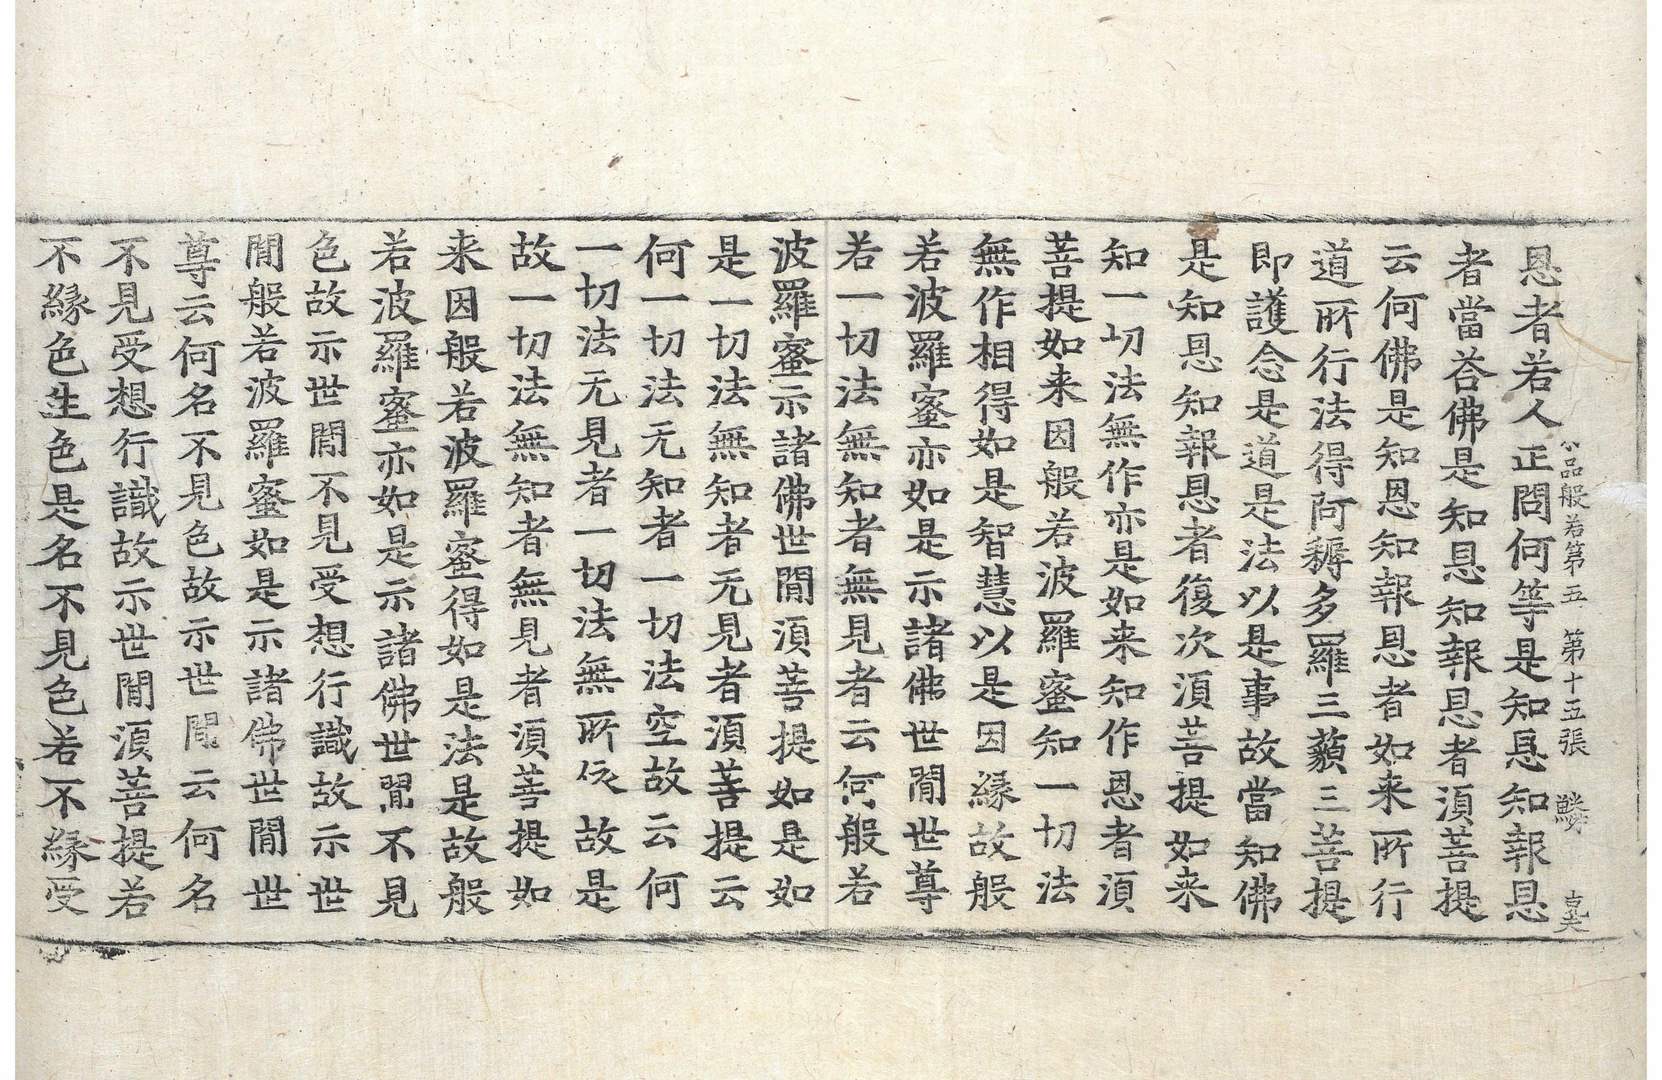 小品般若第五 第十五張 鱗
恩者若人正問何等是知恩知報恩
者當荅佛是知恩知報恩者湏菩提
云何佛是知恩知報恩者如来所行
道所行法得阿耨多羅三藐三菩提
即護念是道是法以是事故當知佛
是知恩知報恩者復次湏菩提如来
知一切法無作亦是如来知作恩者湏
菩提如来因般若波羅蜜知一切法
無作相得如是智慧以是因緣故般
若波羅蜜亦如是示諸佛世閒世尊
若一切法無知者無見者云何般若
波羅蜜示諸佛世閒湏菩提如是如
是一切法無知者无見者湏菩提云
何一切法无知者一切法空故云何
一切法无見者一切法無所依故是
故一切法無知者無見者湏菩提如
来因般若波羅蜜得如是法是故般
若波羅蜜亦如是示諸佛世閒不見
色故示世閒不見受想行識故示世
閒般若波羅蜜如是示諸佛世閒世
尊云何名不見色故示世閒云何名
不見受想行識故示世閒湏菩提若
不緣色生色是名不見色若不緣受